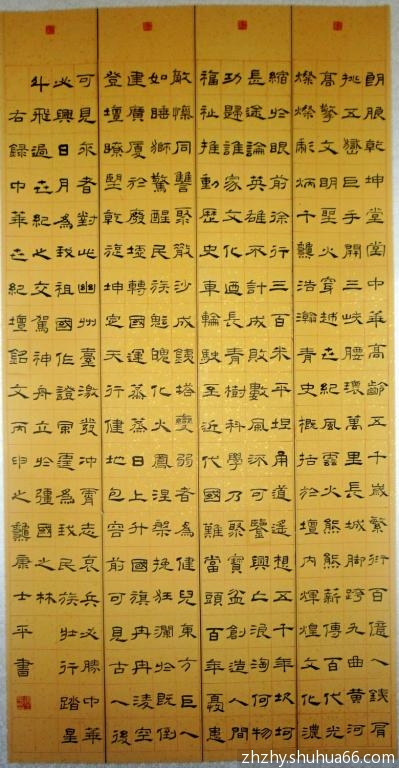 朗朗乾坤堂堂中華高齡五千歲繁衍百億人鐵肩
挑五嶽巨手開三峽腰環萬里長城腳跨九曲黃河
高擎文明聖火穿越世紀風雲火熊熊薪傳百代光
燦燦彪炳千龔浩瀚青史概括於壇內輝煌文化濃
縮於眼前徐行三百米平坦甬道遙想五千年坎坷
長途論英雄不計成敗數風流可鑒興亡浪淘何物
功歸誰家文化迺長青樹科學乃聚寶盆創造人間
福祉推動歷史車輪駛至近代國難當頭百年憂患
敵愾同讐聚散沙成鐵塔變弱者為健兒氣方巨人
如睡獅驚醒民族魁魄化火鳳涅槃挽狂瀾既倒
建廣廈於廢墟轉國運蒸蒸日上升國旗冉冉凌空
登壇瞭望乾旋坤定天行健地包容前可見古人後
可見來者對此幽州臺激發冲霄志哀兵必勝中華
必興日月為我祖國作證雷霆為我民族壯行踏星
斗飛過世紀之交駕神舟立於疆國之林
右錄中華世紀壇銘文丙申之龔康士平書
zhzhy.shuhua66.com